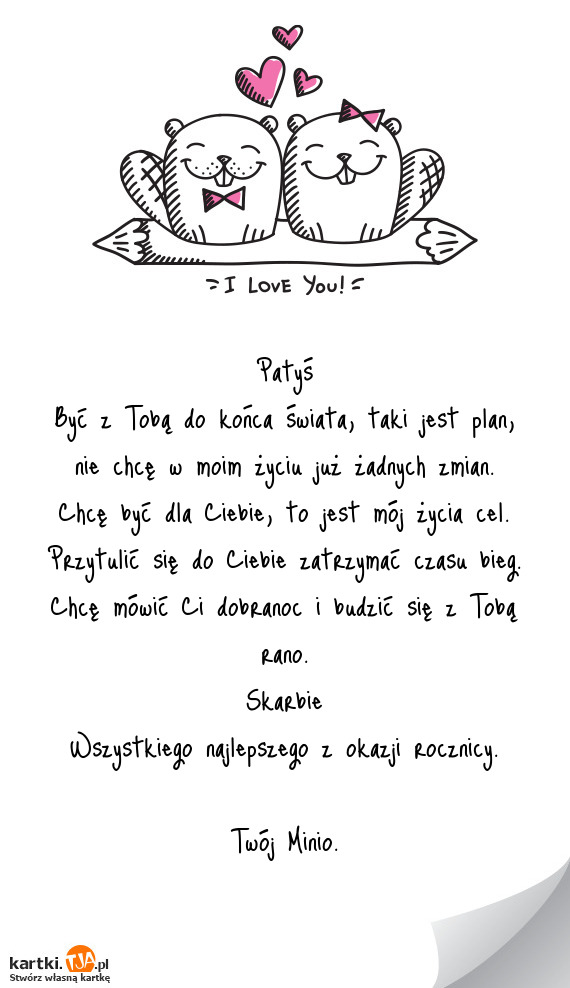 I LOVE YOU!
Patyś
Być z Tobą do końca świata, taki jest plan,
nie chcę w moim życiu już żadnych zmian.
Chcę być dla Ciebie, to jest mój życia cel.
Przytulić się do Ciebie zatrzymać czasu bieg.
Chcę mówić Ci dobranoc i budzić się z Tobą
rano.
Skarbie
Wszystkiego najlepszego z okazji rocznicy.
Twój Minio.
kartki.TJA.pl
Stwórz własną kartkę